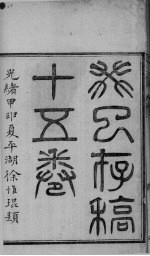 癸巳存稿
十五卷
光緒甲申夏平湖徐惟琨題